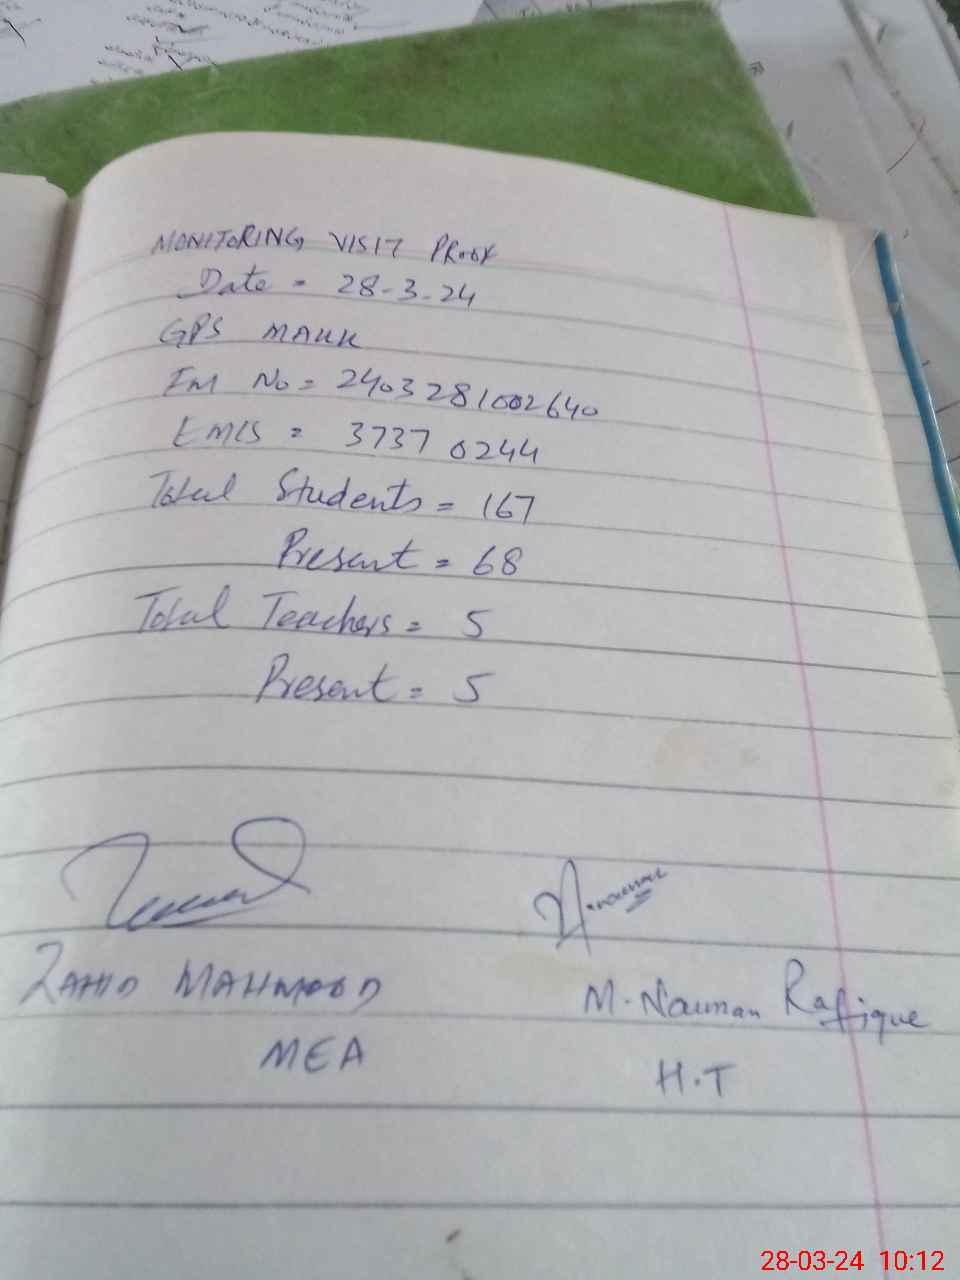 MONITORING VISIT PROOF
Date = 28-3-24
GPS MAKK
IM No = 2403281002640
EMIS = 37370244
Total Students = 167
Present = 68
Total Teachers = 5
Present = 5
ZAHID MAHMOOD
M. Nauman Rafique
MEA
H.T
28-03-24 10:12